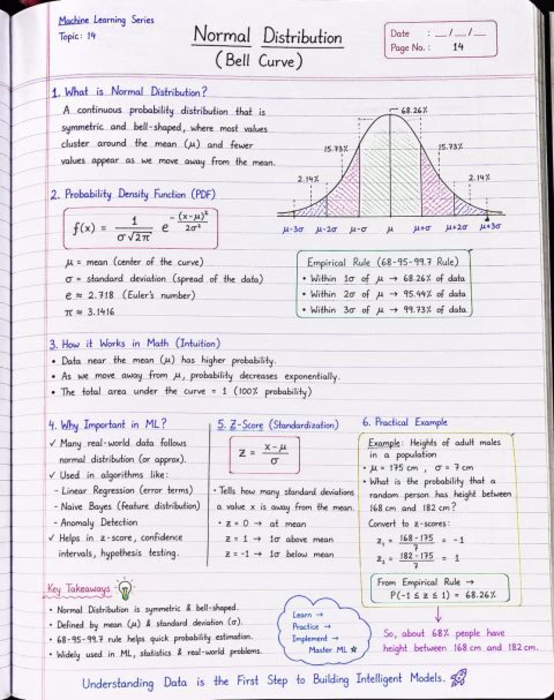 Machine Learning Series
Topic: 14
Normal Distribution
(Bell Curve)
Date : _/_/_
Page No. : 14
1. What is Normal Distribution?
A continuous probability distribution that is
symmetric and bell-shaped, where most values
cluster around the mean (μ) and fewer
values appear as we move away from the mean.
68.26%
15.73%
15.73%
2.14%
2.14%
μ-3σ μ-2σ μ-σ μ μ+σ μ+2σ μ+3σ
2. Probability Density Function (PDF)
f(x) = 1/(σ√2π) e^(-(x-μ)²/2σ²)
μ = mean (center of the curve)
σ = standard deviation (spread of the data)
e ≈ 2.718 (Euler's number)
π ≈ 3.1416
Empirical Rule (68-95-99.7 Rule)
• Within 1σ of μ → 68.26% of data
• Within 2σ of μ → 95.44% of data
• Within 3σ of μ → 99.73% of data
3. How it Works in Math (Intuition)
• Data near the mean (μ) has higher probability.
• As we move away from μ, probability decreases exponentially.
• The total area under the curve = 1 (100% probability)
4. Why Important in ML?
✓ Many real-world data follows
normal distribution (or approx).
✓ Used in algorithms like:
- Linear Regression (error terms)
- Naive Bayes (feature distribution)
- Anomaly Detection
✓ Helps in z-score, confidence
intervals, hypothesis testing.
5. Z-Score (Standardization)
Z = (x-μ)/σ
• Tells how many standard deviations
a value x is away from the mean.
• z = 0 → at mean
z = 1 → 1σ above mean
z = -1 → 1σ below mean
6. Practical Example
Example: Heights of adult males
in a population
• μ = 175 cm , σ = 7 cm
• What is the probability that a
random person has height between
168 cm and 182 cm?
Convert to z-scores:
z₁ = (168-175)/7 = -1
z₂ = (182-175)/7 = 1
From Empirical Rule →
P(-1 ≤ z ≤ 1) = 68.26%
So, about 68% people have
height between 168 cm and 182 cm.
Key Takeaways
• Normal Distribution is symmetric & bell-shaped.
• Defined by mean (μ) & standard deviation (σ).
• 68-95-99.7 rule helps quick probability estimation.
• Widely used in ML, statistics & real-world problems.
Learn →
Practice →
Implement →
Master ML ★
Understanding Data is the First Step to Building Intelligent Models.